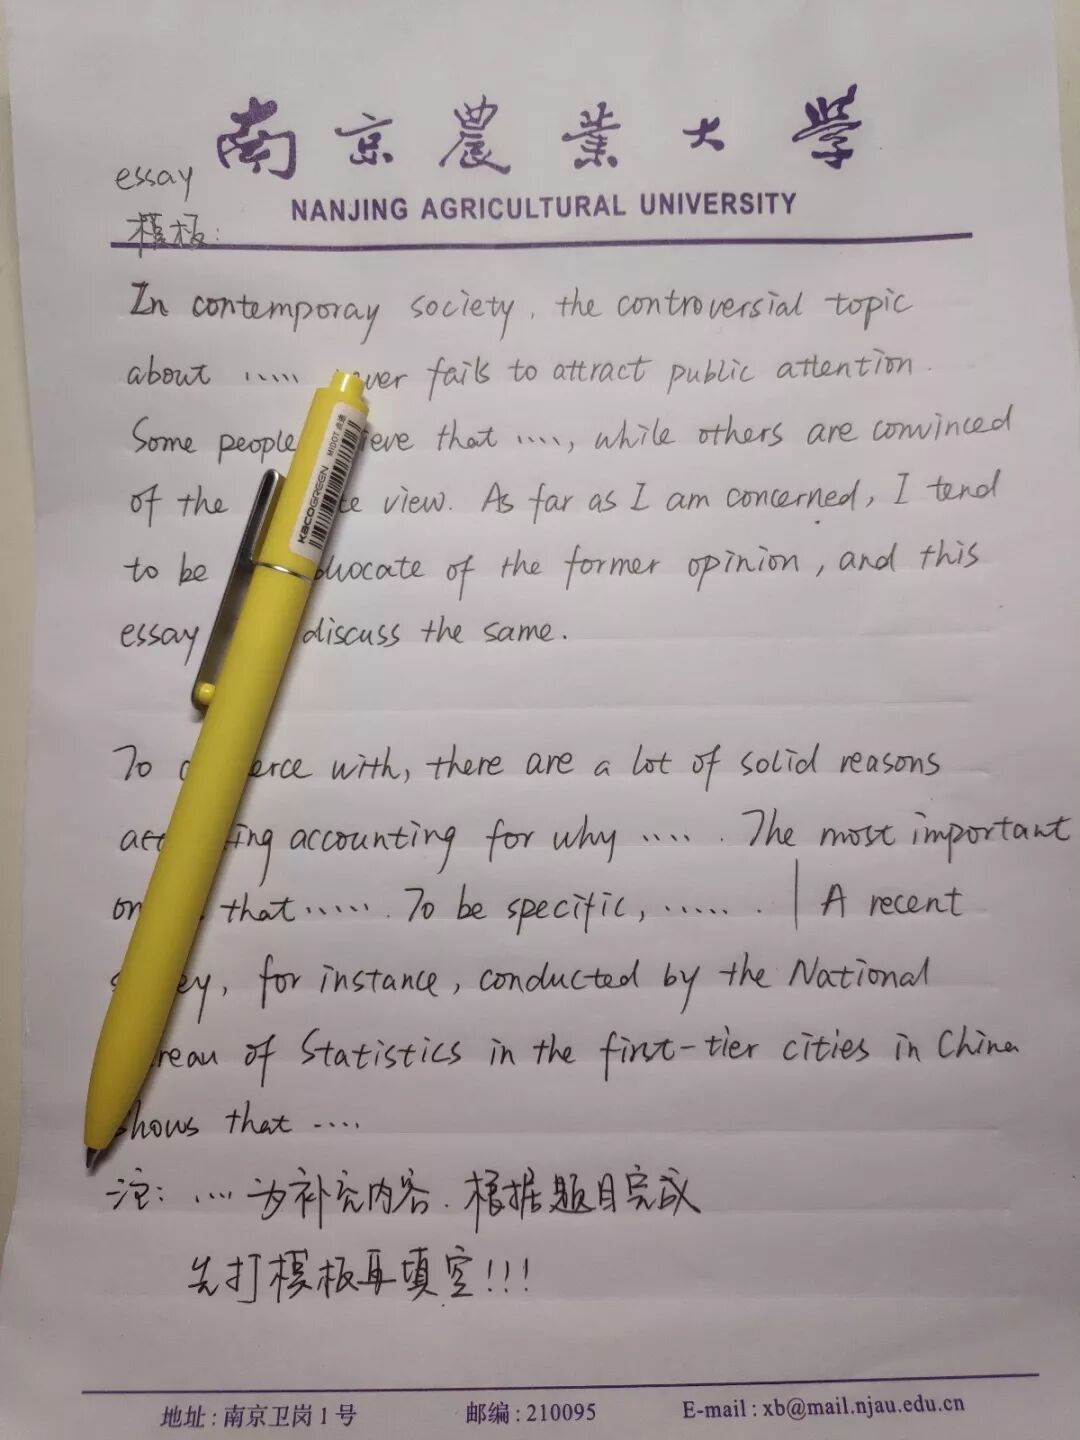 南京農業大學
essay
NANJING AGRICULTURAL UNIVERSITY
模板:
In contemporay society, the controversial topic
about ..... never fails to attract public attention.
Some people lieve that ...., while others are convinced
of the te view. As far as I am concerned, I tend
to be dvocate of the former opinion, and this
essay discuss the same.
MIDOT 点途
KACOGREEN
To erce with, there are a lot of solid reasons
ing accounting for why ..... . The most important
on that ..... . To be specific, ...... . | A recent
ey, for instance, conducted by the National
reau of Statistics in the first-tier cities in China
shows that ....
注: .... 为补充内容. 根据题目完成
先打模板再填空!!!
地址:南京卫岗1号 邮编:210095 E-mail:xb@mail.njau.edu.cn